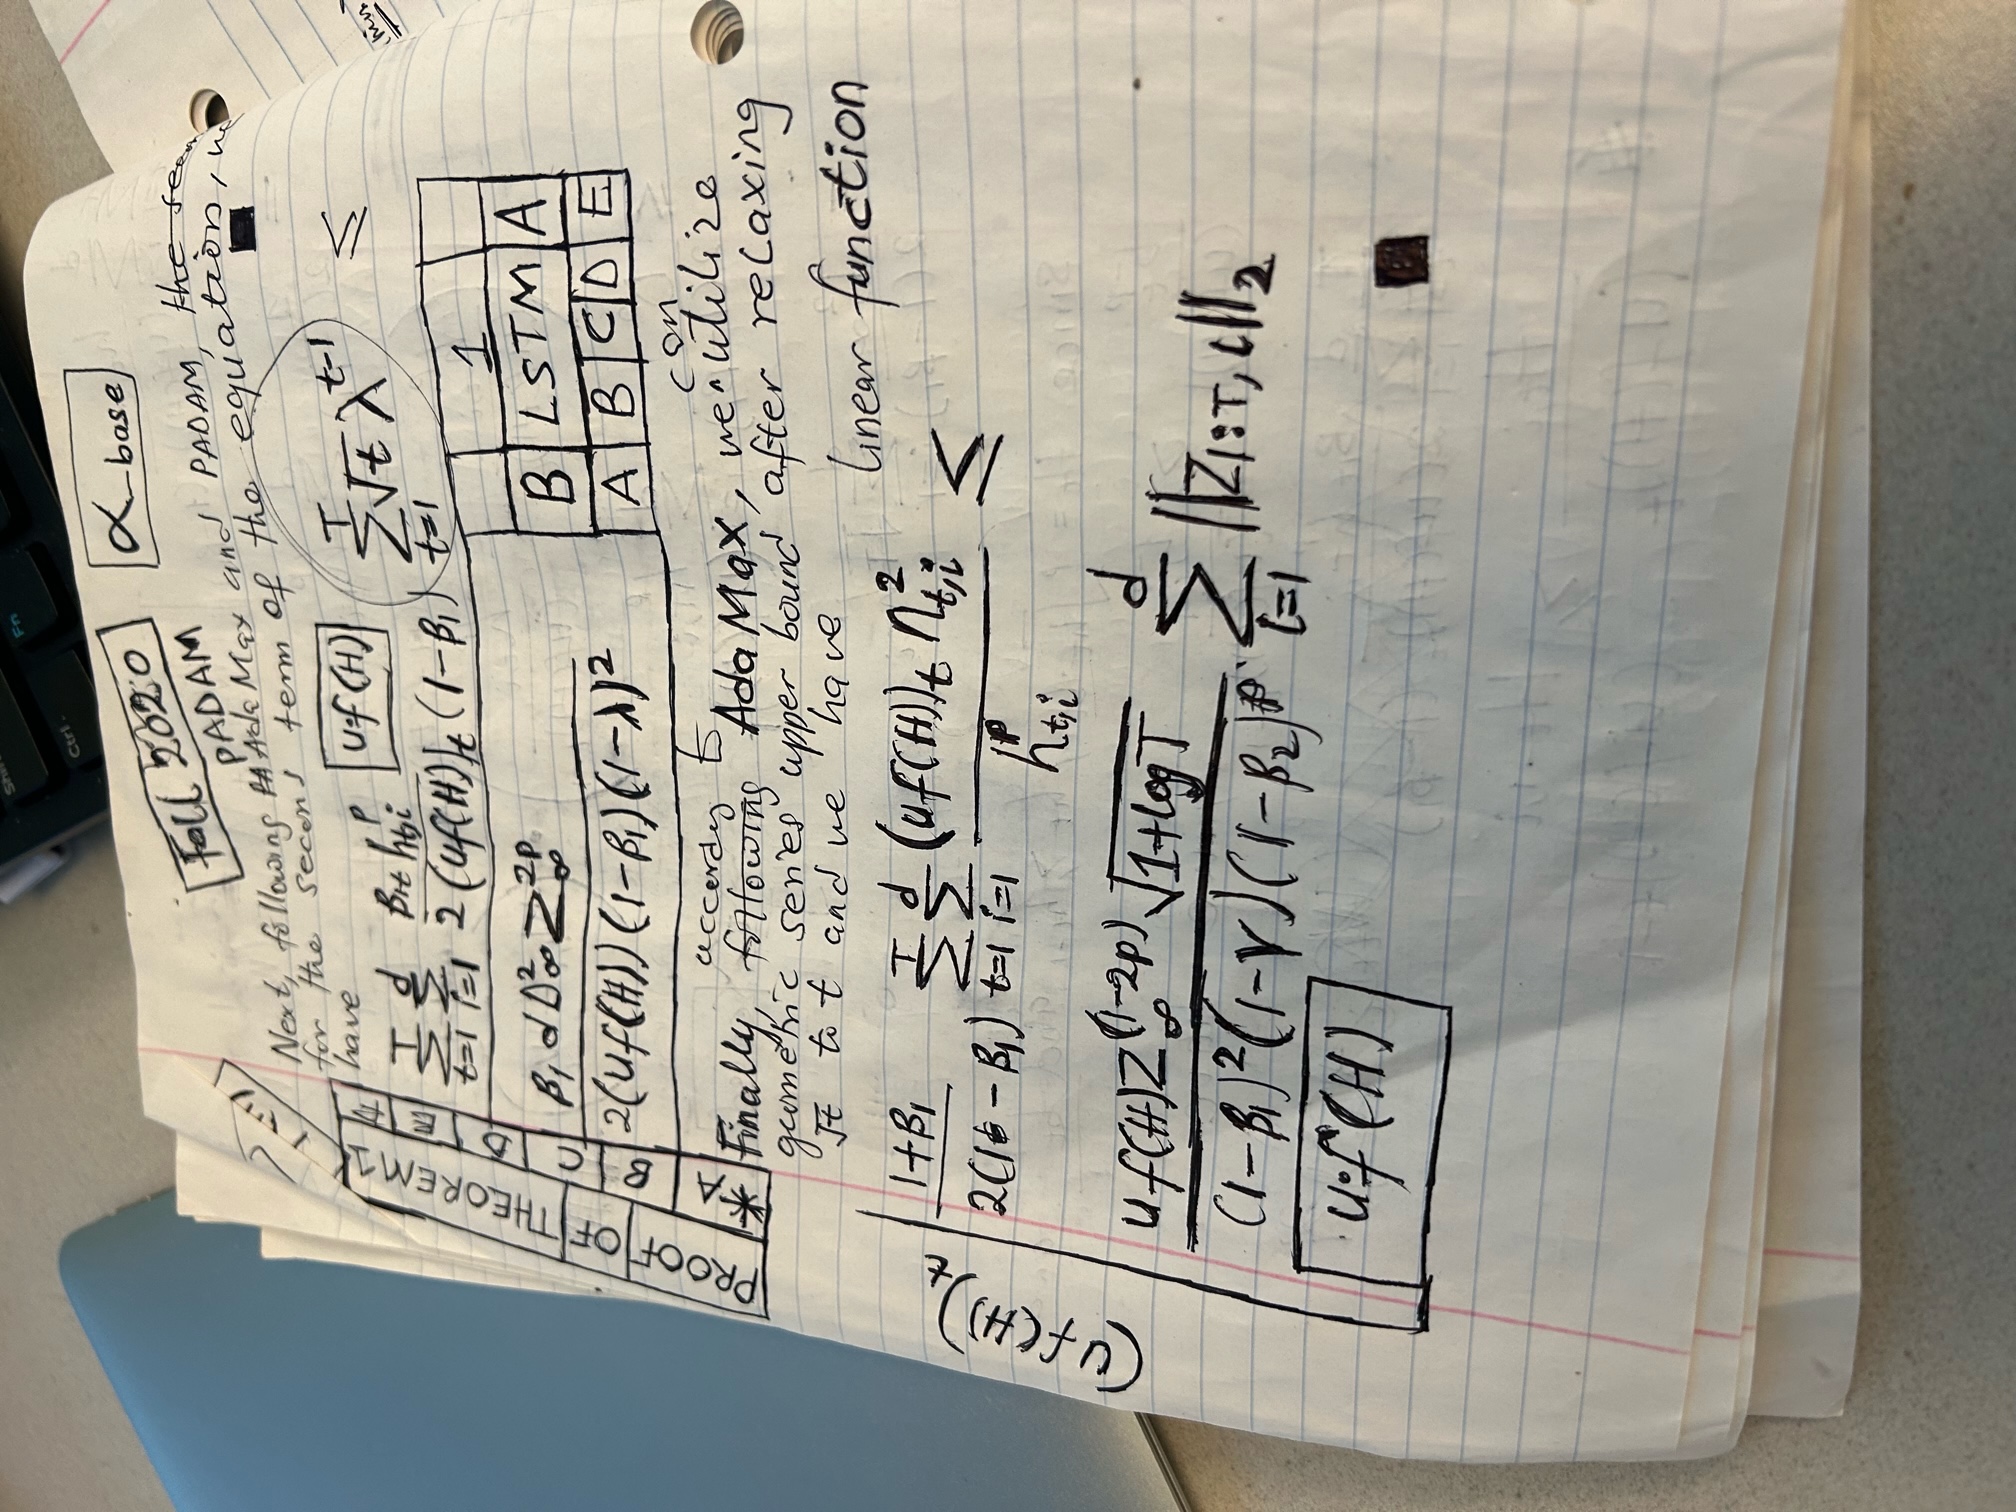 Shift
Fn
Ctrl
Fall 2020
α_base
PADAM
Next, following AdaMax and PADAM, the seco
for the second term of the equation, we
have
u·f(H)
\sum_{t=1}^{T} \sum_{i=1}^{d} \frac{β_{1t} h_{t,i}^{p}}{2(uf(H))_t (1-β_1)} \sum_{t=1}^{T} \sqrt{t} λ^{t-1} ≤
\frac{β_1 d D_∞^2 Z_∞^{2p}}{2(uf(H))(1-β_1)(1-λ)^2}
1
B LSTM A
A B C D E
PROOF OF THEOREM 1
* A B C D E F
can
Finally, following according to AdaMax, we utilize
geometric series upper bound after relaxing
√t to t and we have
linear function
(uf(H))_t
\frac{1+β_1}{2(1-β_1)} \sum_{t=1}^{T} \sum_{i=1}^{d} \frac{(uf(H))_t n_{t,i}^2}{h_{t,i}^p} ≤
\frac{uf(H) Z_∞^{(1-2p)} \sqrt{1+log T}}{(1-β_1)^2 (1-γ)(1-β_2)^p} \sum_{i=1}^{d} ||Z_{1:T,i}||_2
u·f(H)